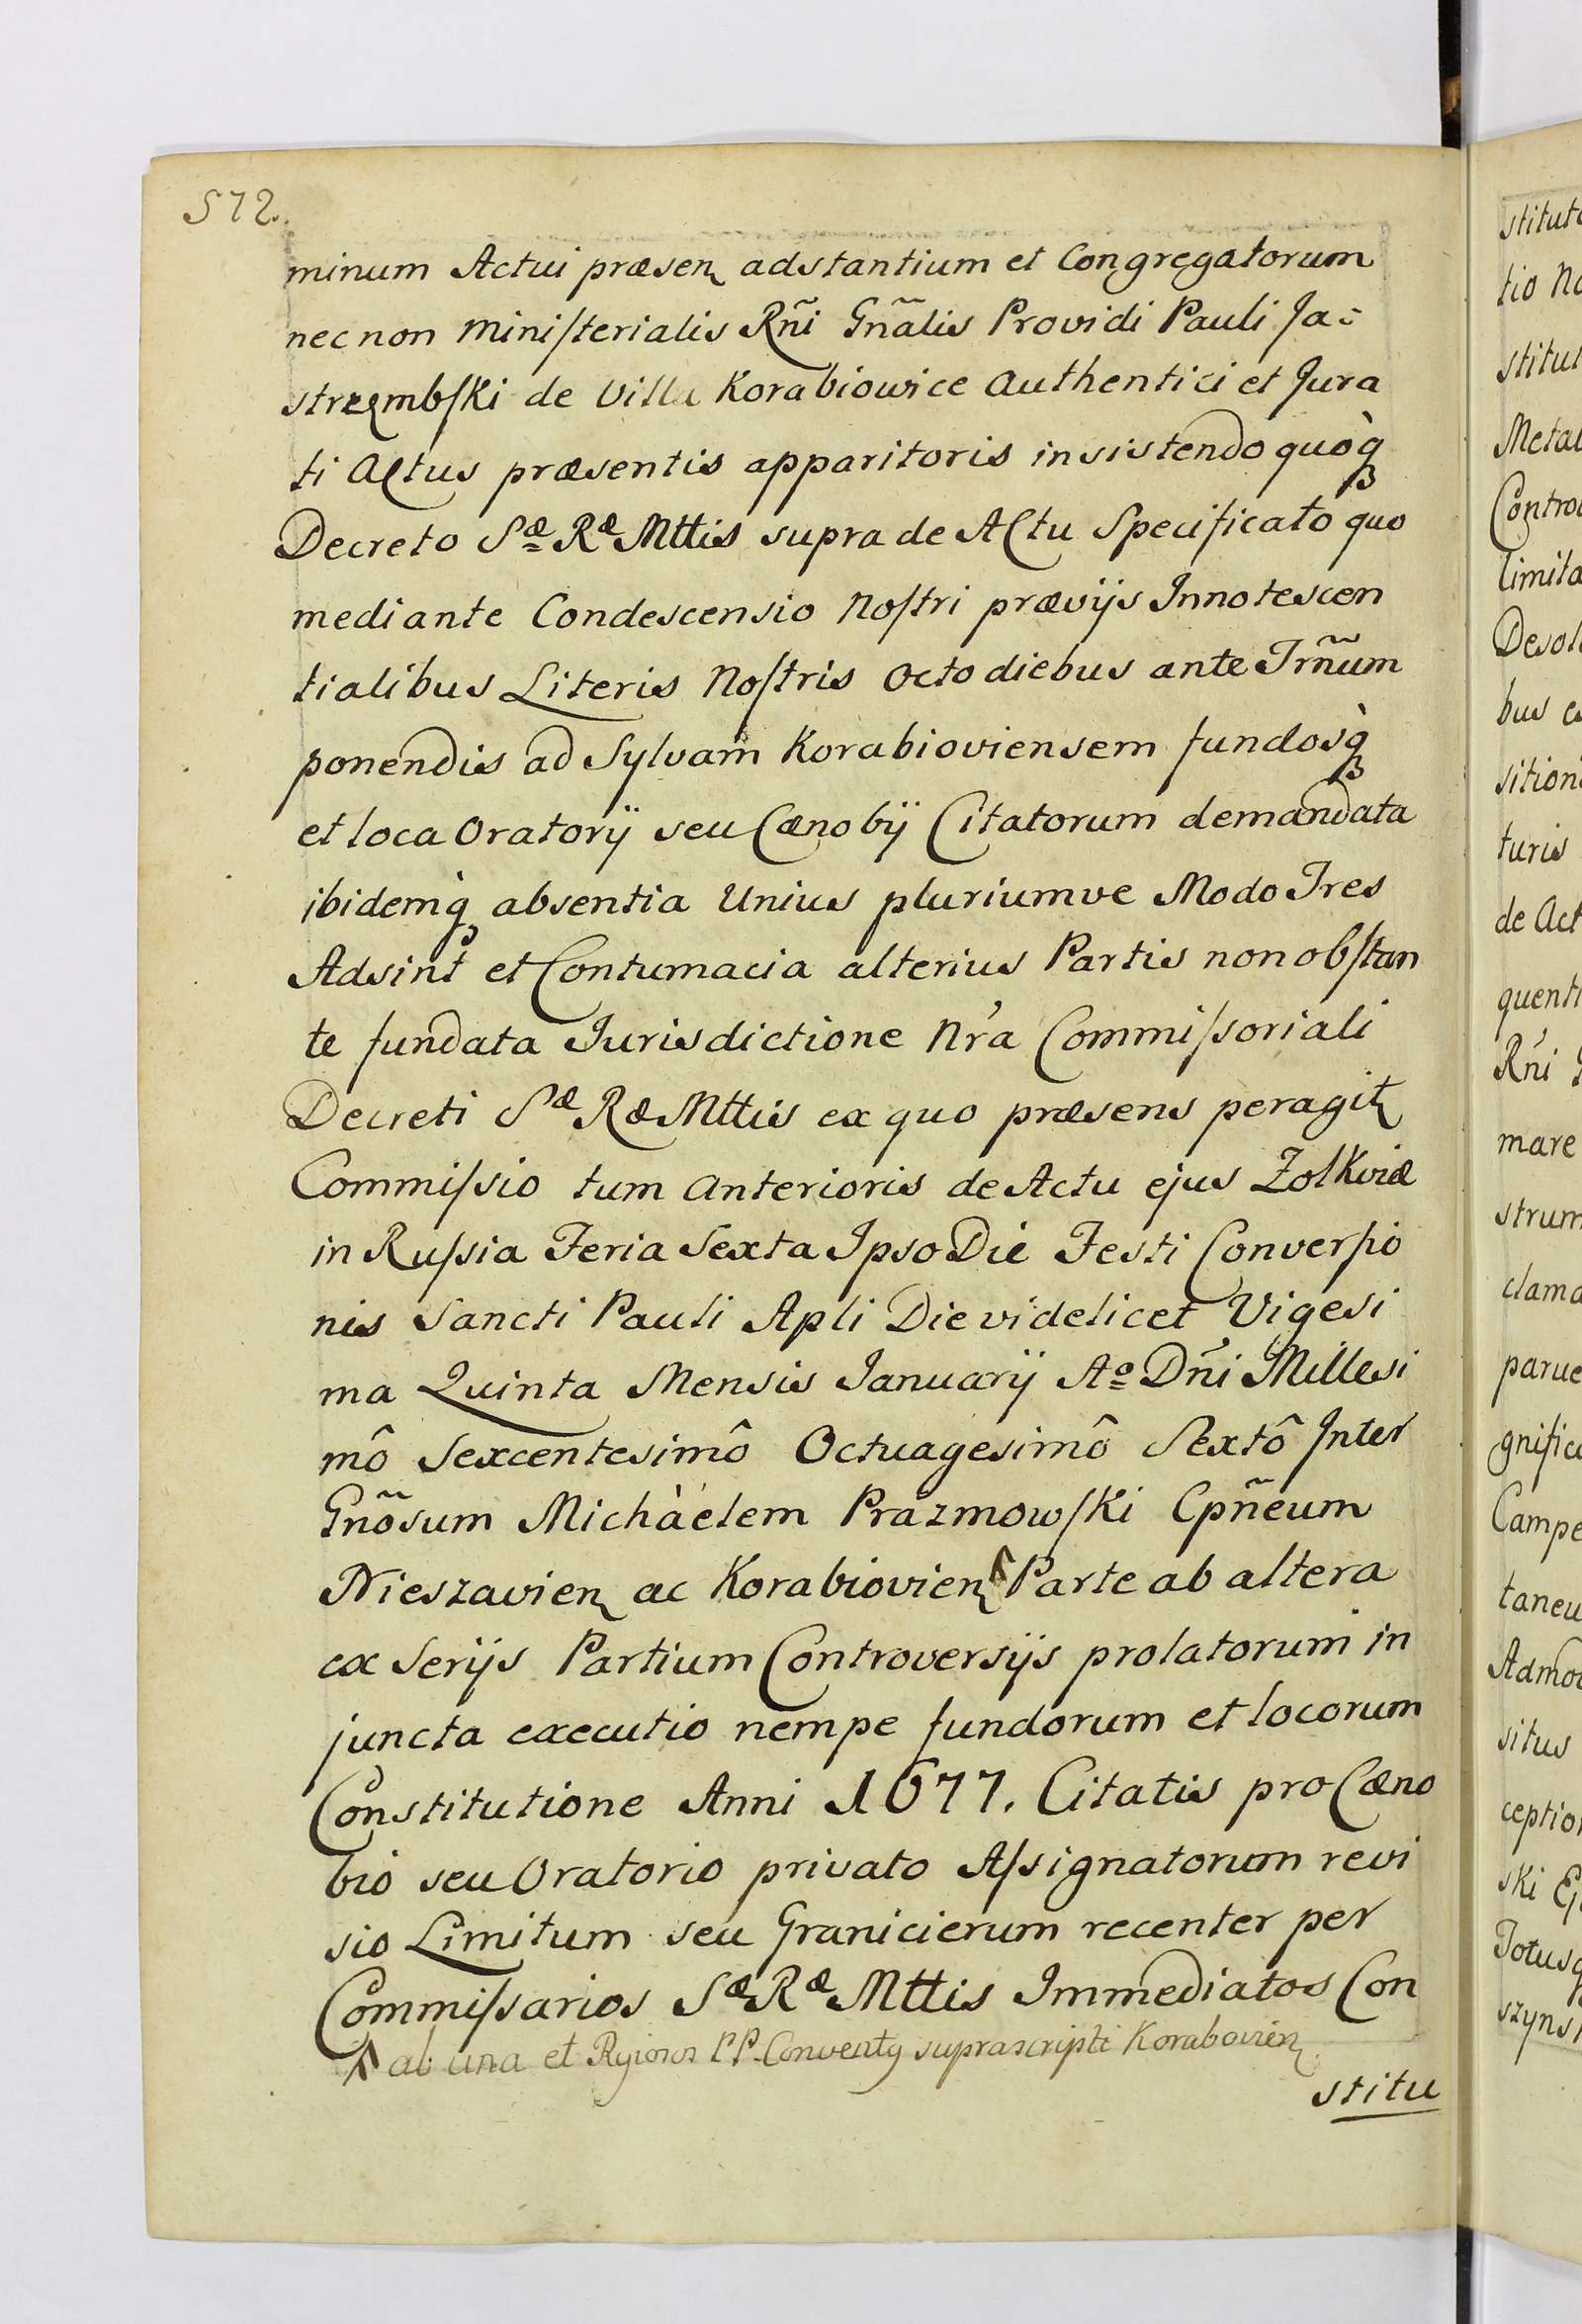 572.
minum Actui præsen adstantium et Congregatorum
nec non ministerialis Rñi Gñalis Providi Pauli Ja=
strzęmbſki de Villa Korabiowice Authentici et Jura
ti Actus præsentis apparitoris insistendo quòq̨
Decreto Sæ Ræ Mttis supra de Actu Specificato quo
mediante Condescensio Noſtri prævijs Innotescen
tialibus Literis Noſtris Octo diebus ante Trm̃um
ponendis ad Sylvam Korabioviensem fundosq̨
et loca Oratorÿ seu Cænobÿ Citatorum demandata
ibidemq̨ absentia Unius pluriumve Modo Tres
Adsint et Contumacia alterius Partis non obſtan
te fundata Jurisdictione Nr̃a Commiſsoriali
Decreti Sæ Ræ Mttis ex quo præsens peragit
Commiſsio tum Anterioris de Actu ejus Zolkviæ
in Ruſsia Feria Sexta Ipso Die Festi Converſio
nis Sancti Pauli Apli Die videlicet Vigesi
ma Quinta Mensis Januarÿ Aº Dñi Millesi
mô Sexcentesimô Octuagesimô Sextô Inter
Gñosum Michàelem Prazmowſki Cpñeum
Nieszavien ac Korabiovien Parte ab altera
ex Serÿs Partium Controversÿs prolatorum in
juncta executio nempe fundorum et locorum
Constitutione Anni 1677. Citatis pro Cæno
bio seu Oratorio privato Aſsignatorum revi
sio Limitum seu Granicierum recenter per
Commiſsarios Sæ Ræ Mttis Immediatos Con
ab una et PP. Conventus suprascripti Korabovien
stitu
stitut
tio No
stitut
Metal
Contro
limita
Desol
bus
sition
turis
de Act
quenti
Rñi
mare
strum
clama
parue
gnific
Campe
taneu
Admod
situs
ceptio
ski
Totusq
szyns